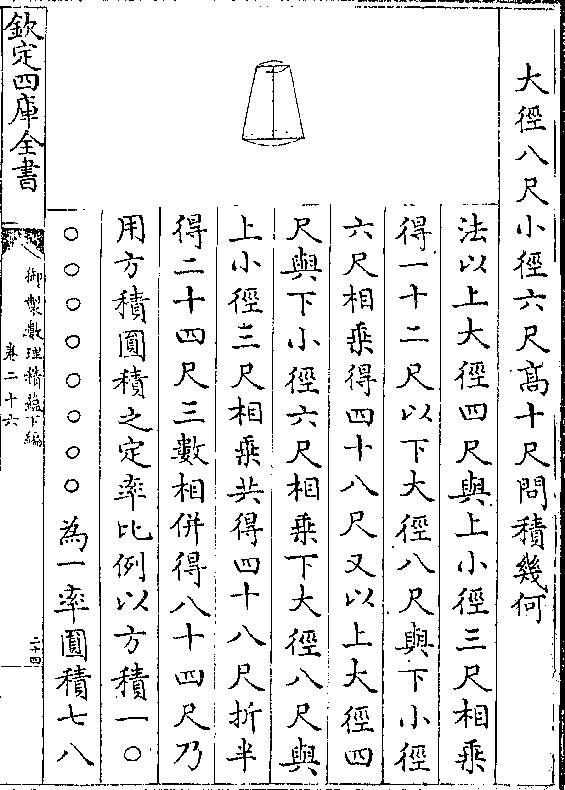 大徑八尺小徑六尺髙十尺問積幾何
法以上大徑四尺與上小徑三尺相乘
得一十二尺以下大徑八尺與下小徑
六尺相乘得四十八尺又以上大徑四
尺與下小徑六尺相乘下大徑八尺與
上小徑三尺相乘共得四十八尺折半
得二十四尺三數相併得八十四尺乃
用方積圓積之定率比例以方積一〇
〇〇〇〇〇〇〇〇為一率圓積七八
欽定四庫全書
御製數理精蘊下編
卷二十六
二十四